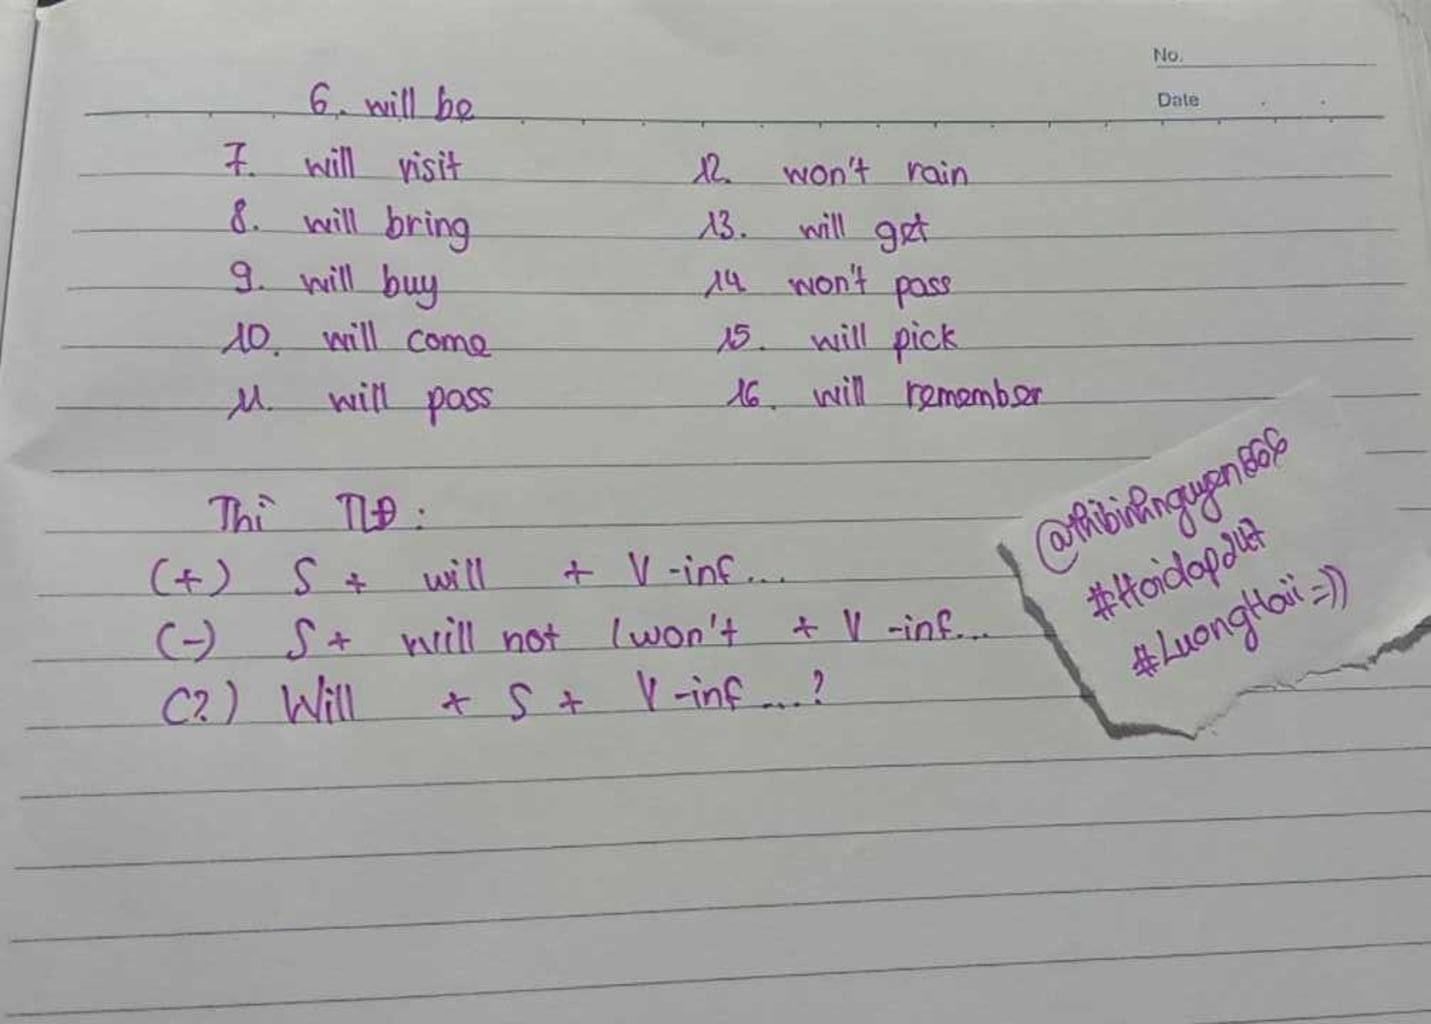 No.
Date
6. will be
7. will visit
8. will bring
9. will buy
10. will come
11. will pass
12. won't rain
13. will get
14. won't pass
15. will pick
16. will remember
Thì TLĐ:
(+) S + will + V-inf...
(-) S + will not /won't + V-inf...
(?) Will + S + V-inf....?
@thibinhnguyen866
#Hoidap247
#LuongHaii=))